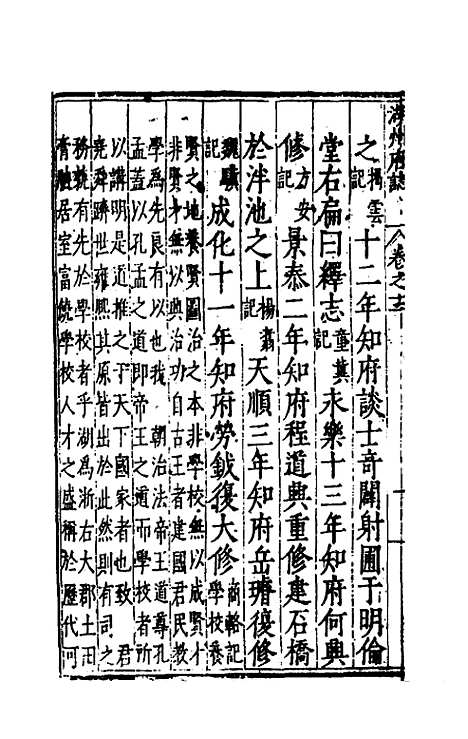 湖州府志 卷之十三
之楊雲記十二年知府談士奇闢射圃于明倫
堂右扁曰繹志董莫記永樂十三年知府何興
修方安記景泰二年知府程道興重修建石橋
於泮池之上楊翥記天順三年知府岳璿復修
魏驥記成化十一年知府勞鉞復大修商輅記學校養
賢之地養賢圖治之本非學校無以成賢才
非賢才無以興治功自古王者建國君民教
學為先良有以也我 朝治法帝王道尊孔
孟蓋以孔孟之道即帝王之道而學校者所
以講明是道推之于天下國家者也致 君
堯舜躋世雍熙其原皆出於此然則有司之
務孰有先於學校者乎湖為浙右大郡土田
膏腴居室富饒學校人才之盛稱於歷代可